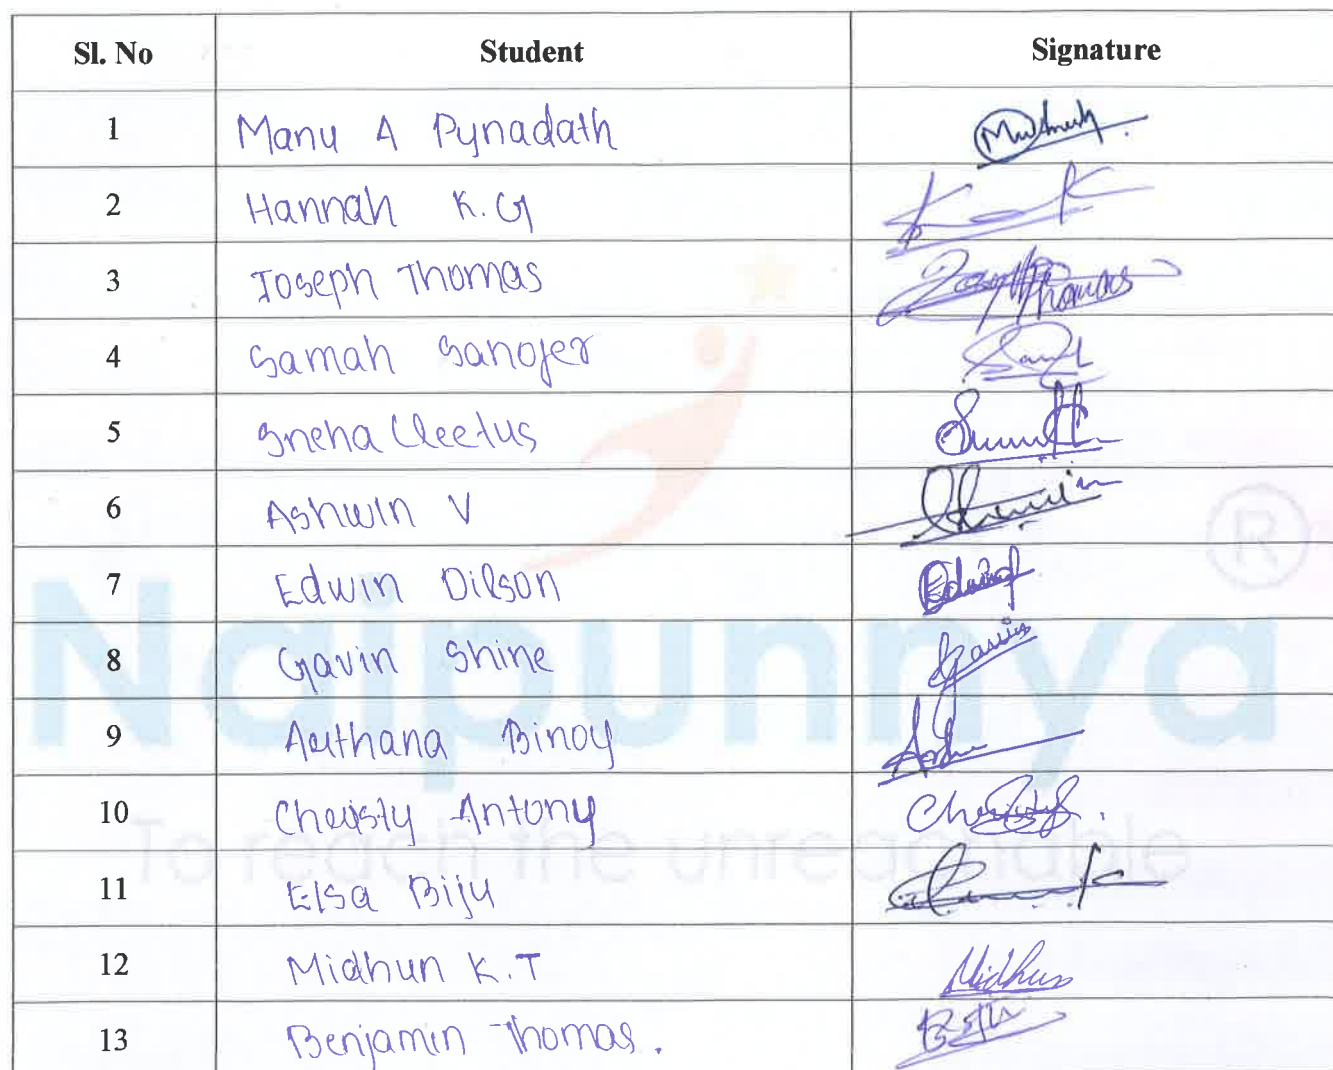 Sl. No Student Signature
1 Manu A Pynadath
2 Hannah K.G
3 Joseph Thomas Thomas
4 Samah Sanojer
5 Sneha Cleetus
6 Ashwin V
7 Edwin Dilson
8 Gavin Shine Gavin
9 Binoy
10 Antony
11 Elsa Biju
12 Midhun K.T Midhun
13 Benjamin Thomas.
Naipunnya ®
To reach the unreachable